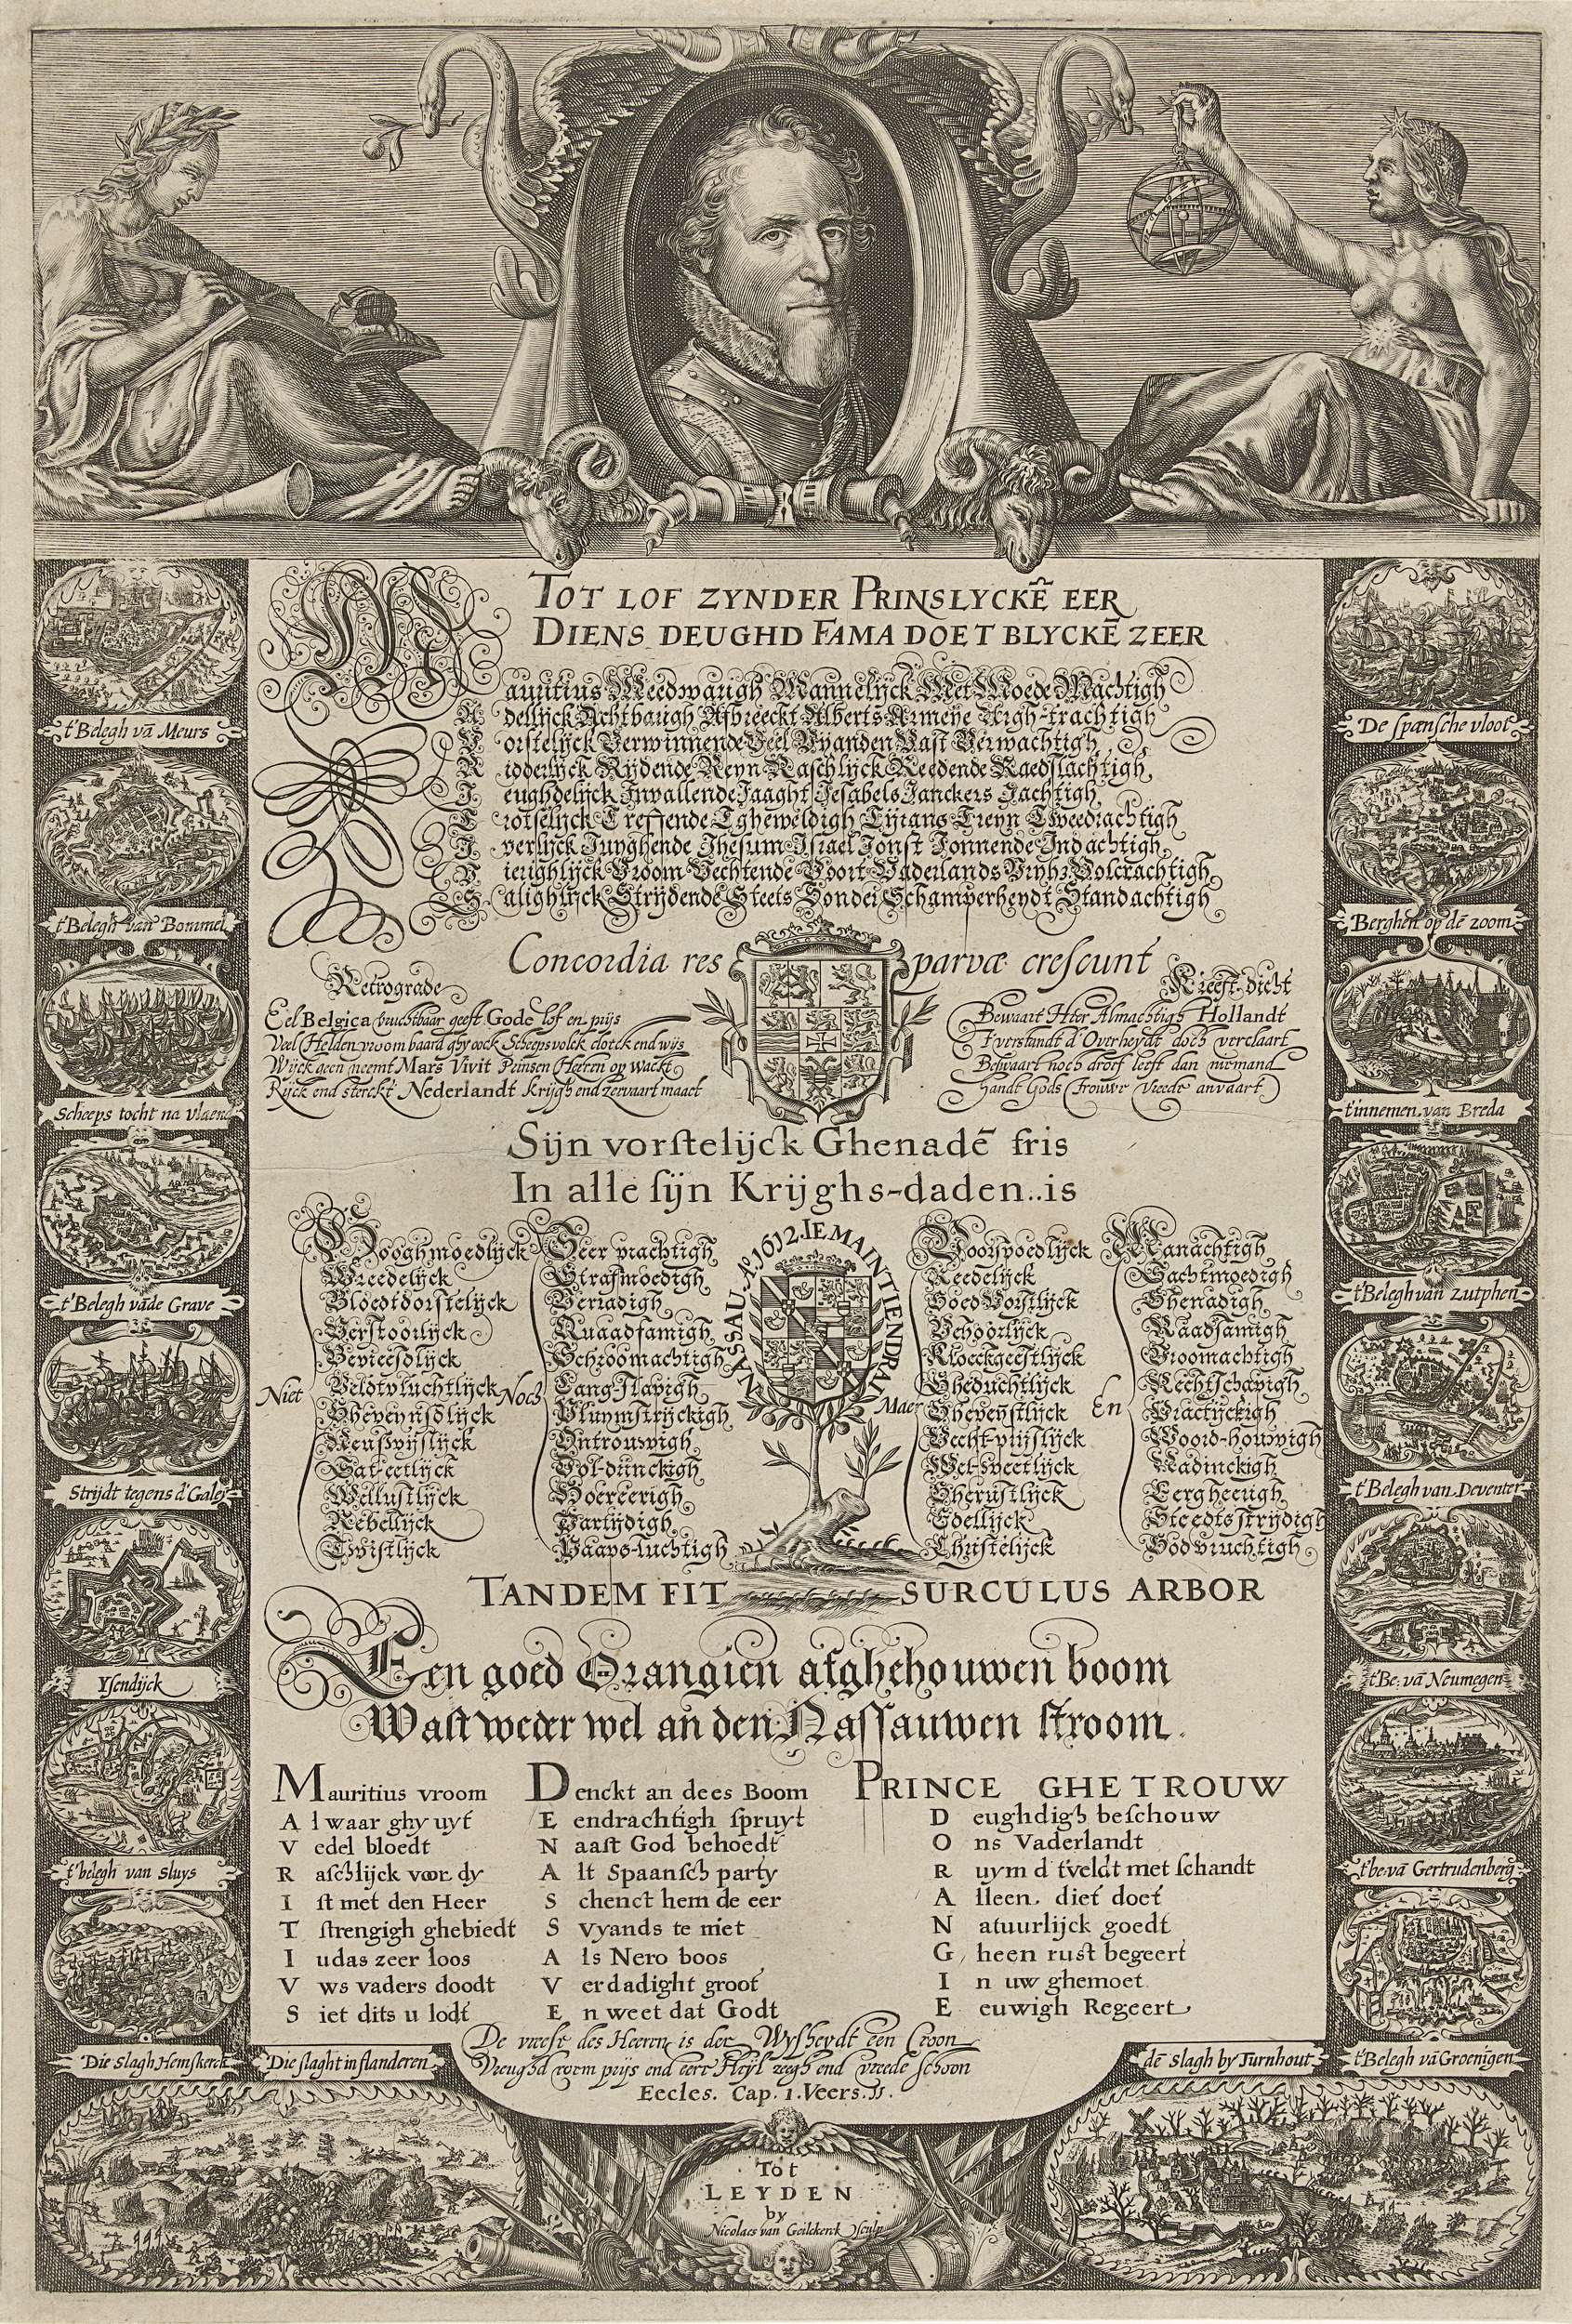 TOT LOF ZYNDER PRINSLYCKĒ EER
DIENS DEUGHD FAMA DOET BLYCKĒ ZEER
Mauritius Meedwaugh Mannelijck Met Moede Machtigh
Adellijck Achtbaugh Afbreeckt Alberts Armeye Argh-trachtigh
Vorstelijck Verwinnende Veel Vyanden Vast Verwachtigh
Ridderlijck Rijdende Reyn Raschlijck Reedende Raedslachtigh
Ieughdelijck Invallende Iaaght Iesabels Ianckers Iachtigh
Trotselijck Treffende Tgheweldigh Tijrans Treyn Tweedrachtigh
Iverlijck Iunghende Ihesum Israel Ionst Ionnende Indachtigh
Vierighlijck Vroom Vechtende Voort Vaderlands Vryh: Volcrachtigh
Salighlijck Strijdende Steets Sonder Schamperheydt Standachtigh
Concordia res parvæ crescunt
Retrograde
Eel Belgica vruchtbaar geeft Gode lof en prijs
Veel Helden vroom baard ghy oock Scheepsvolck cloeck end wijs
Wijck geen neemt Mars Vivit Prinsen Heeren op wackt
Rijck end sterckt Nederlandt krijgh end zeevaart maact
Kreeft-dicht
Bewaart Heer Almachtigh Hollandt
T'verstandt d'Overheydt doch verclaart
Bewaart noch droef leeft dan niemand
Handt Gods Trouwe Vrede anvaart
Sijn vorstelijck Ghenadē fris
In alle sijn Krijghs-daden..is
Niet
Hooghmoedlijck
Wreedelijck
Bloedtdorstelijck
Verstoorlijck
Bevreesdlijck
Veldtvluchtlijck
Gheveynsdlijck
Neuswijslijck
Sat-eetlijck
Wellustlijck
Rebellijck
Twistlijck
Noch
Seer prachtigh
Strafmoedigh
Verradigh
Quaadsamigh
Schroomachtigh
Lang-slapigh
Pluymstrijckigh
Ontrouwigh
Vol-dunckigh
Hoereerigh
Partijdigh
Paaps-luchtigh
NASSAU. Aº. 1612. IE MAINTIENDRAI
Maer
Voorspoedlijck
Reedelijck
Goed Vorstlijck
Ghoorlijck
Kloeckgeestlijck
Gheduchtlijck
Ghepeijstlijck
Vecht-prijslijck
Wel-sweetlijck
Gherustlijck
Edellijck
Christelijck
En
Manachtigh
Sachtmoedigh
Ghenadigh
Raadsamigh
Vroomachtigh
Rechtschapigh
Practijckigh
Woord-houwigh
Nadinckigh
Eergheerigh
Steedts strydigh
Godvruchtigh
TANDEM FIT SURCULUS ARBOR
Een goed Orangien afghehouwen boom
Wast weder wel an den Nassauwen stroom.
Mauritius vroom
Al waar ghy uyt
Vedel bloedt
Raschlijck voor dy
Ist met den Heer
Tstrengigh ghebiedt
Iudas zeer loos
Vws vaders doodt
Siet dits u lodt
Denckt an dees Boom
Eendrachtigh spruyt
Naast God behoedt
Alt Spaansch party
Schenct hem de eer
Svyands te niet
Als Nero boos
Verdadight groot
En weet dat Godt
PRINCE GHETROUW
Deughdigh beschouw
Ons Vaderlandt
Ruym d'tveldt met schandt
Alleen, diet doet
Natuurlijck goedt
Gheen rust begeert
In uw ghemoet
Eeuwigh Regeert
De vreese des Heeren is der Wysheydt een Croon
Vreughd roem prijs end eere Heyl zeegh end vreede schoon
Eccles. Cap. 1. Veers.
t'Belegh vā Meurs
t'Belegh van Bommel
Scheeps tocht na vlaend
t'Belegh vāde Grave
Strijdt tegens d'Galey
Ysendijck
t'belegh van sluys
Die slagh Hemskerck
Die slaght in flanderen
De spansche vloot
Berghen op dē zoom
t'innemen van Breda
t'Belegh van Zutphen
t'Belegh van Deventer
t'Be: vā Neumegen
t'be vā Gertrudenberg
t'Belegh vā Groenigen
dē Slagh by Turnhout
Tot
LEYDEN
by
Nicolaes van Geilekerck sculp